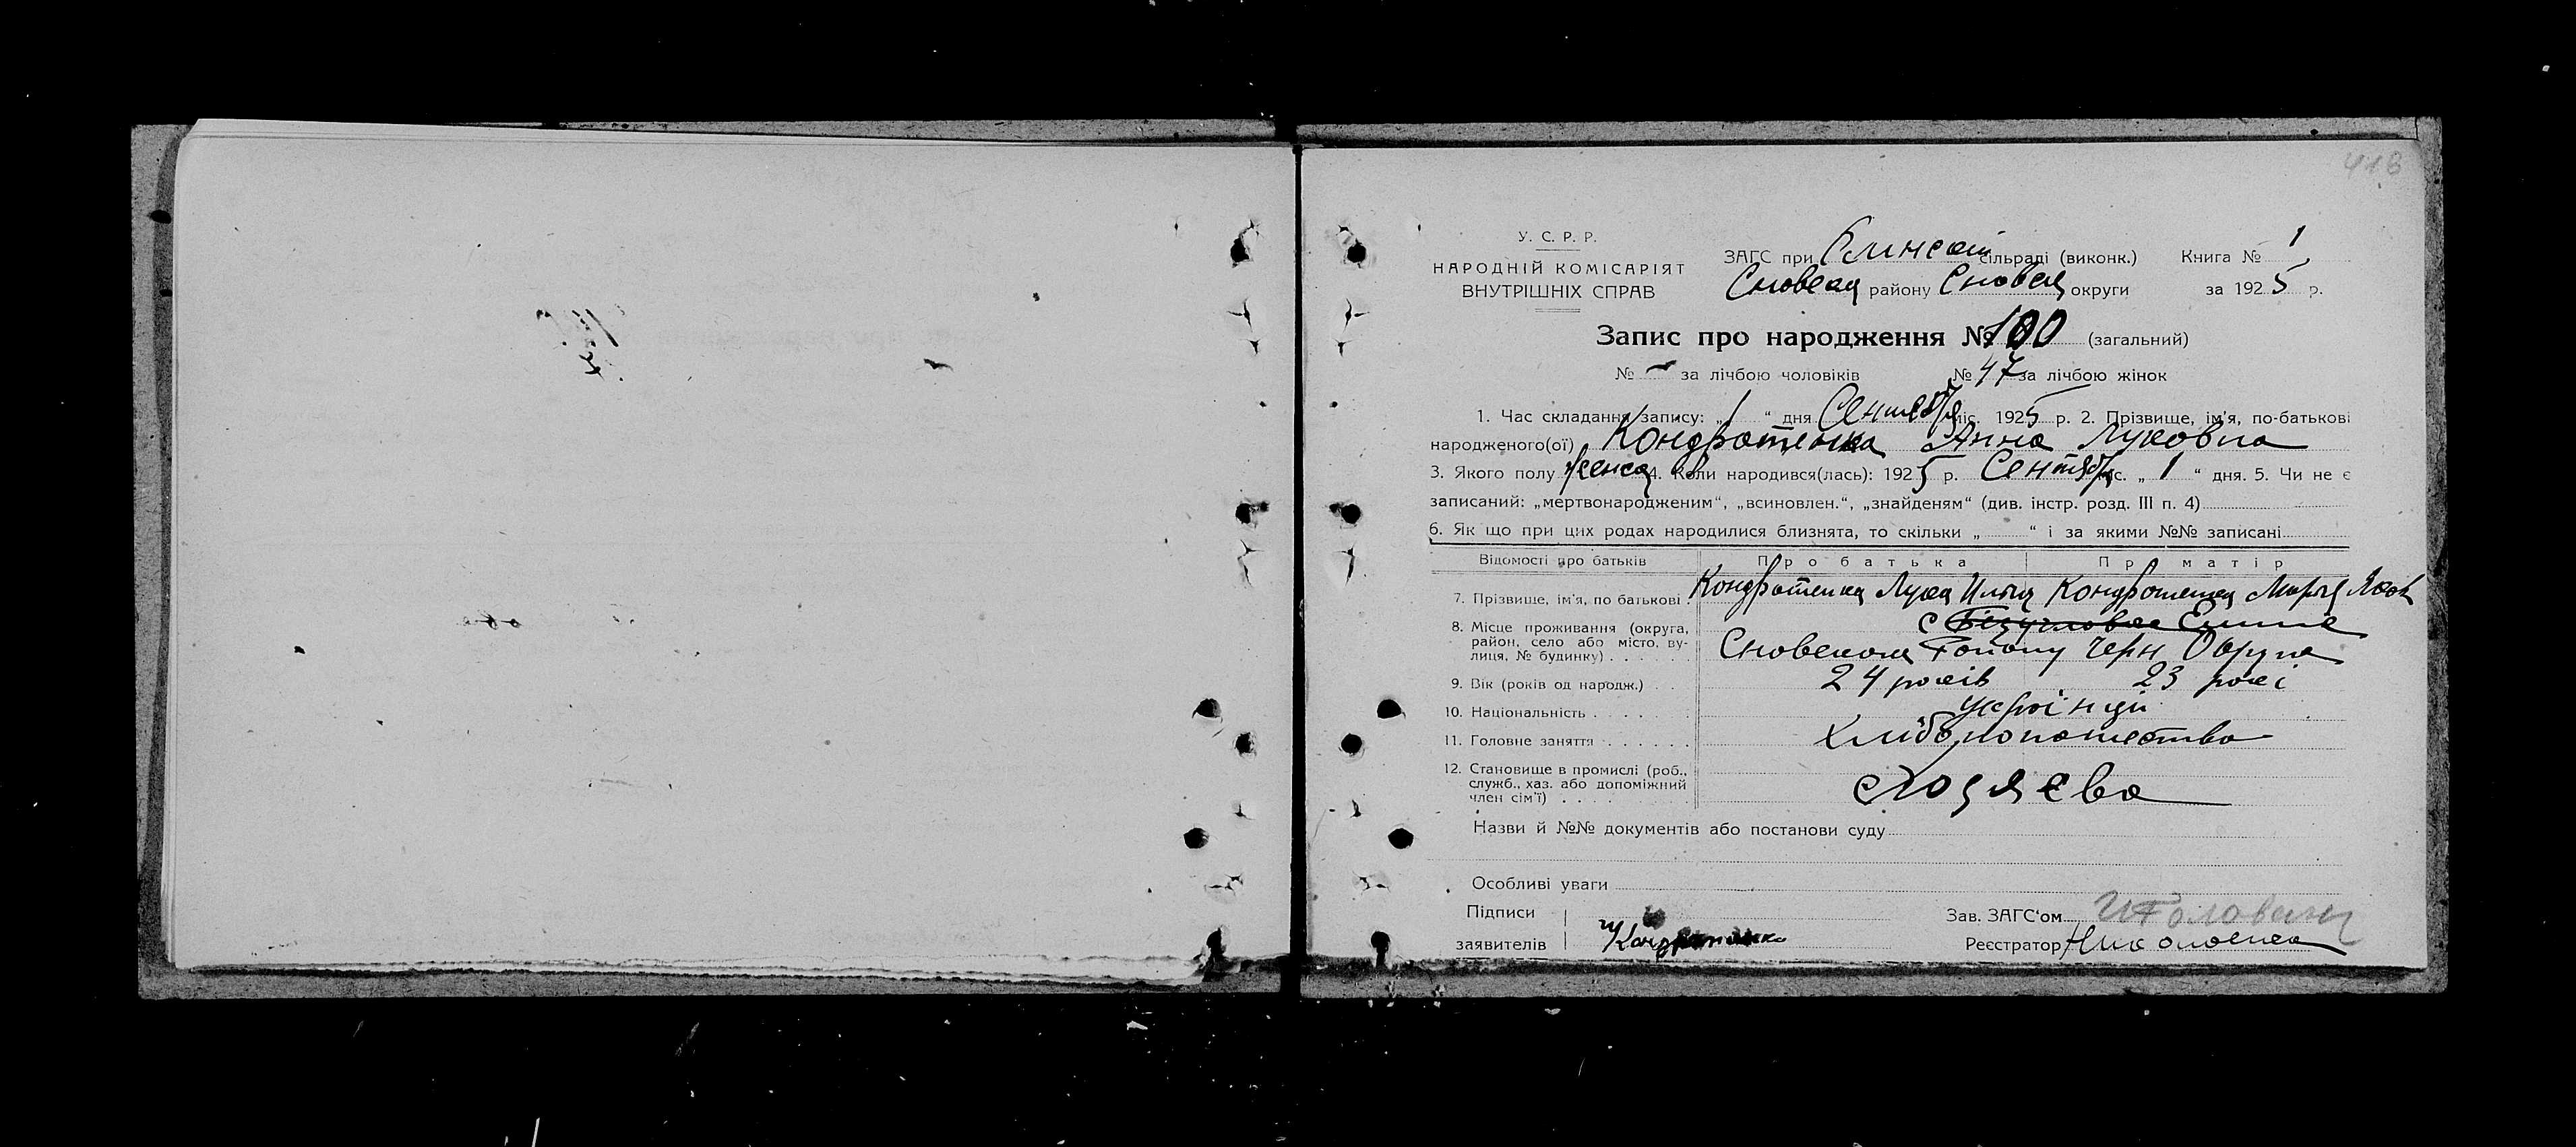 418
У. С. Р. Р.
НАРОДНІЙ КОМІСАРІЯТ
ВНУТРІШНІХ СПРАВ
ЗАГС при сільраді (виконк.) Книга № 1
району округи за 1925 р.
Запис про народження № 100 (загальний)
№ — за лічбою чоловіків № 47 за лічбою жінок
1. Час складання запису: „ 1 “ дня Сентяб міс. 1925 р. 2. Прізвище, ім'я, по-батькові
народженого(ої) Кондратенка Анна Луковна
3. Якого полу женск 4. Коли народився(лась): 1925 р. Сентяб міс. „ 1 “ дня. 5. Чи не є
записаний: „мертвонародженим“, „всиновлен.“, „знайденям“ (див. інстр. розд. III п. 4)
6. Як що при цих родах народилися близнята, то скільки „ “ і за якими №№ записані
Відомості про батьків Про батька Про матір
7. Прізвище, ім'я, по батькові Кондратенка Лука Ильич Кондратенка Марія Яков
8. Місце проживання (округа, район, село або місто, вулиця, № будинку) с
Району Черн Округа
9. Вік (років од народж.) 24 років 23 рокі
10. Національність українці
11. Головне заняття
12. Становище в промислі (роб., служб., хаз. або допоміжний член сім'ї)
Назви й №№ документів або постанови суду
Особливі уваги
Підписи
заявителів Кондратенко
Зав. ЗАГС'ом
Реєстратор